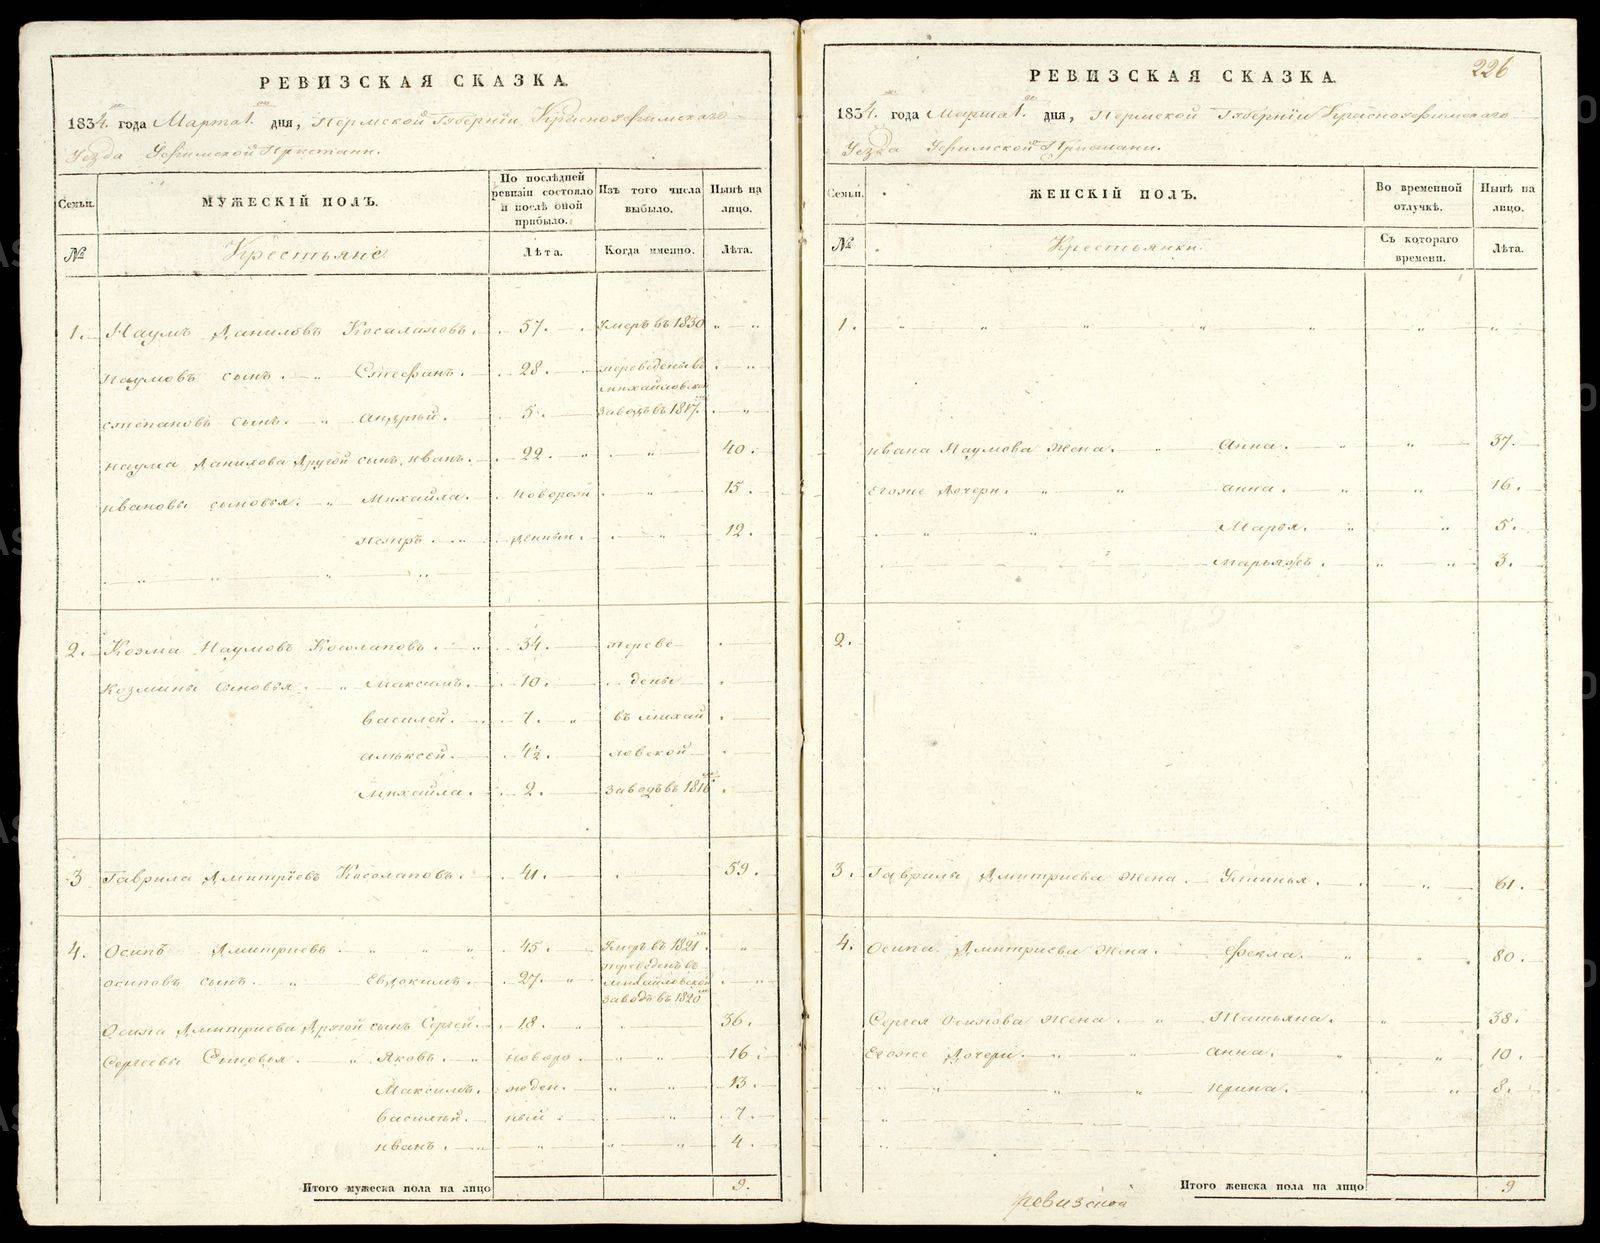 РЕВИЗСКАЯ СКАЗКА.
1834. года Марта 1. дня, Пермской Губерніи Красноуфимскаго
Уезда Уфимской Пристани.
Семьи.
МУЖЕСКІЙ ПОЛЪ.
По послѣдней ревизіи состояло и послѣ оной прибыло.
Изъ того числа выбыло.
Нынѣ на лицо.
№
Крестьяне
Лѣта.
Когда именно.
Лѣта.
1. Наумъ Даниловъ Косалаповъ. 57. Умеръ въ 1830
Наумовъ сынъ. Степанъ. 28. переведены въ
михайловской
степановъ сынъ. андрѣй. 5. заводъ въ 1817.
наума Данилова Другой сынъ, иванъ. 22. 40.
ивановы сыновья. Михайла. новорож 15.
петръ. денныи. 12.
2. Козма Наумовъ Косолаповъ. 34. переве
Козмины Сыновья. Максимъ. 10. дены
Василей. 7. въ михай
алѣксей. 4½ ловской
Михайла. 2. заводъ въ 1816
3 Гаврила Дмитріевъ Косолаповъ. 41. 59.
4. Осипъ Дмитриевъ 45. Умеръ въ 1821.
переведенъ въ
осиповъ сынъ. Евдокимъ. 27. михайловской
заводъ въ 1820
Осипа Дмитриева Другой сынъ Сергей. 18. 36.
Сергеевы Сыновья. Яковъ. новоро 16.
Максимъ. жден. 13.
Василѣй. ный 7.
иванъ. 4.
Итого мужеска пола на лицо 9.
226
РЕВИЗСКАЯ СКАЗКА.
1834. года Марта 1. дня, Пермской Губерніи Красноуфимскаго
Уезда Уфимской Пристани.
Семьи.
ЖЕНСКІЙ ПОЛЪ.
Во временной отлучкѣ.
Нынѣ на лицо.
№
Крестьянки.
Съ котораго времени.
Лѣта.
1.
ивана Наумова Жена. Анна. 37.
Егоже Дочери. анна. 16.
Марья. 5.
марья жъ. 3.
2.
3. Гаврилы Дмитриева Жена. Устинья. 61.
4. Осипа Дмитриева Жена. Фекла. 80.
Сергея Осипова Жена. Татьяна. 38.
Егоже Дочери. анна. 10.
ирина. 8.
Итого женска пола на лицо 9
Ревизской